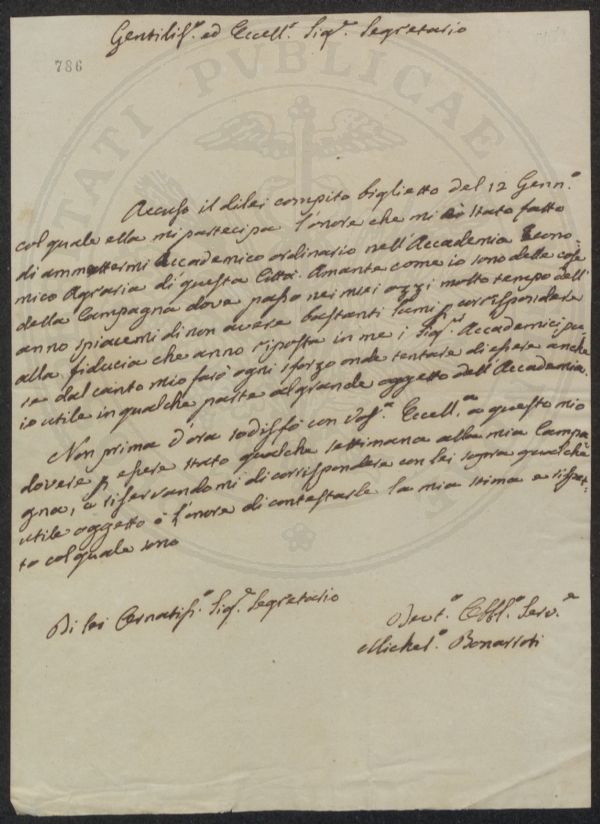 Gentilis.mo ed Eccell.e Sig.r Segretario
786
Accuso il di lei compito biglietto del 12 Genn.o
col quale ella mi partecipa l'onore che mi è stato fatto
di ammettermi Accademico ordinario nell'Accademia Econo-
mico Agraria di questa Città. Amante come io sono delle cose
della Campagna dove passo nei miei ozzi molto tempo dell'
anno spiacemi di non avere bastanti lumi p corrispondere
alla fiducia che anno riposta in me i Sig.ri Accademici pu
re dal canto mio farò ogni sforzo onde tentare di essere anche
io utile in qualche parte al grande oggetto dell'Accademia.
Non prima d'ora sodisfo con Vos.a Eccell.a a questo mio
dovere p essere stato qualche settimana alla mia Campa
gna, e riservandomi di corrispondere con lei sopra qualche
utile oggetto ò l'onore di contestarle la mia stima e rispet-
to col quale sono
Di lei Ornatis.o Sig.r Segretario
Devt.o Obbl.o Serv.e
Michel.o Bonarroti
TATI PVBLICAE